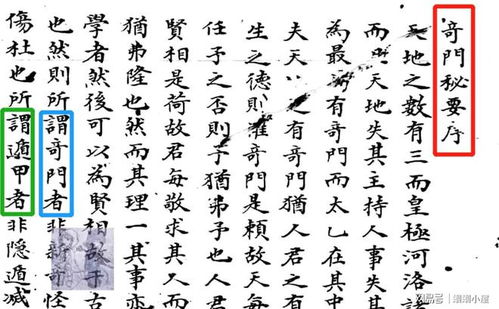 奇門秘要序
天地之數有三而皇極河洛諸
而天地失其主持人事失
為最有奇門而太乙在其中
夫天之有奇門猶人君之有
生之德則惟奇門是賴故天每
任予之否則予猶弗予也人君
賢相是荷故君每敬求其人而
猶弗隆也然而其理一其事亦
學者然後可以為賢相故于古
也然則所謂奇門者非新奇怪
傷杜也所謂遁甲者非隱遁滅